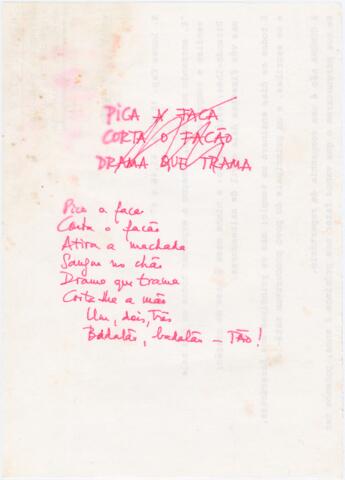 PICA A FACA
CORTA O FACÃO
DRAMA QUE TRAMA
Pica a faca
Corta o facão
Atira a machada
Sangue no chão
Drama que trama
Corta-lhe a mão
Um, dois, três
Badalão, badalão – TÃO!